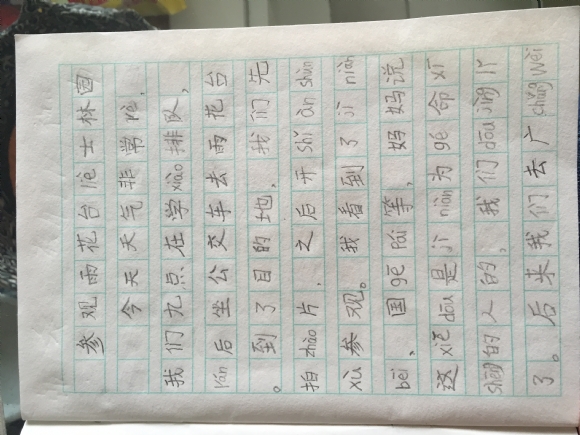 参观雨花台liè士林园
今天天气非常rè,
我们九点在学xiào排队,
rán后坐公交车去雨花台
。到了目的地,我们先
拍zhào片,之后开shǐ àn shùn
xù参观。我看到了jì niàn
bēi、国gē pái等,妈妈说
这xiē dōu是jì niàn为gé命xī
shēng的人的,我们dōu jìng lǐ
了。后来我们去广chǎng wèi